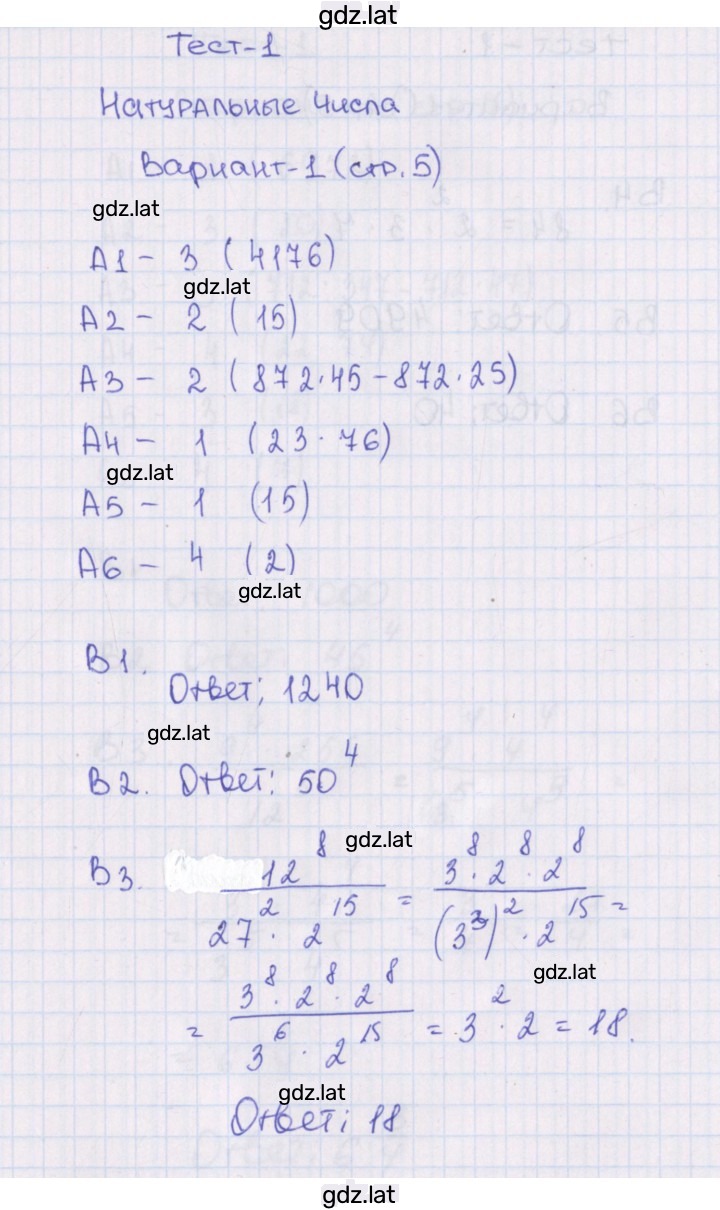 gdz.lat
Тест-1
Натуральные числа
Вариант-1 (стр. 5)
gdz.lat
А1 - 3 (4176)
gdz.lat
А2 - 2 (15)
А3 - 2 (872·45-872·25)
А4 - 1 (23·76)
gdz.lat
А5 - 1 (15)
А6 - 4 (2)
gdz.lat
В1.
Ответ; 1240
gdz.lat
В2. Ответ: 50⁴
gdz.lat
В3. 12⁸ / (27² · 2¹⁵) = (3⁸ · 2⁸ · 2⁸) / ((3³)² · 2¹⁵) =
gdz.lat
= (3⁸ · 2⁸ · 2⁸) / (3⁶ · 2¹⁵) = 3² · 2 = 18.
gdz.lat
Ответ; 18
gdz.lat